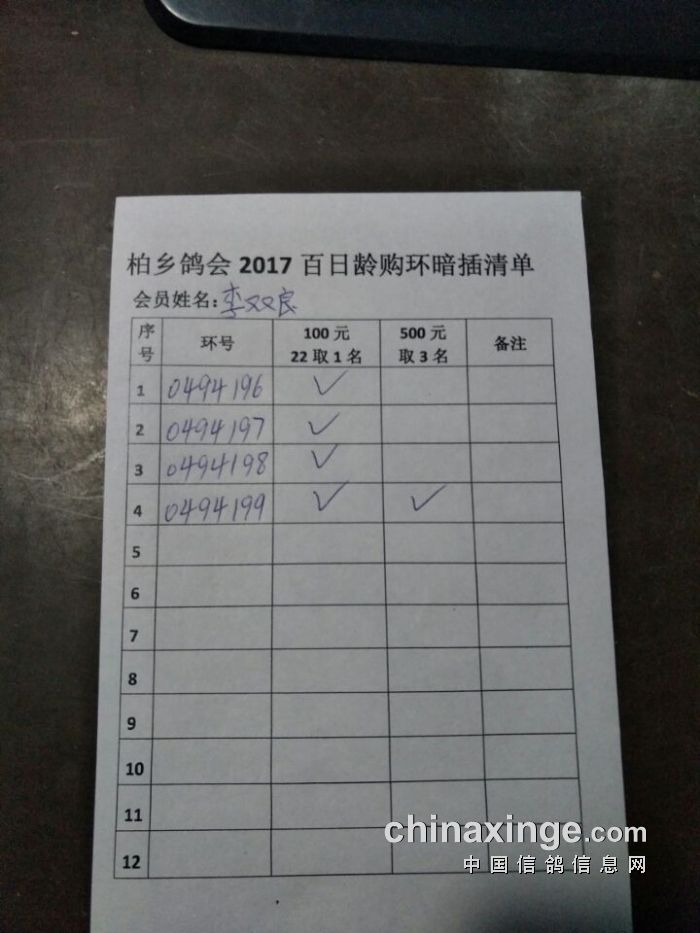 柏乡鸽会2017百日龄购环暗插清单
会员姓名：李双良
序号 环号 100元 22取1名 500元 取3名 备注
1 0494196 ✓
2 0494197 ✓
3 0494198 ✓
4 0494199 ✓ ✓
5
6
7
8
9
10
11
12
chinaxinge.com
中国信鸽信息网